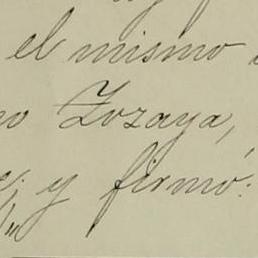 el mismo
no Zozaya,
y firmó.